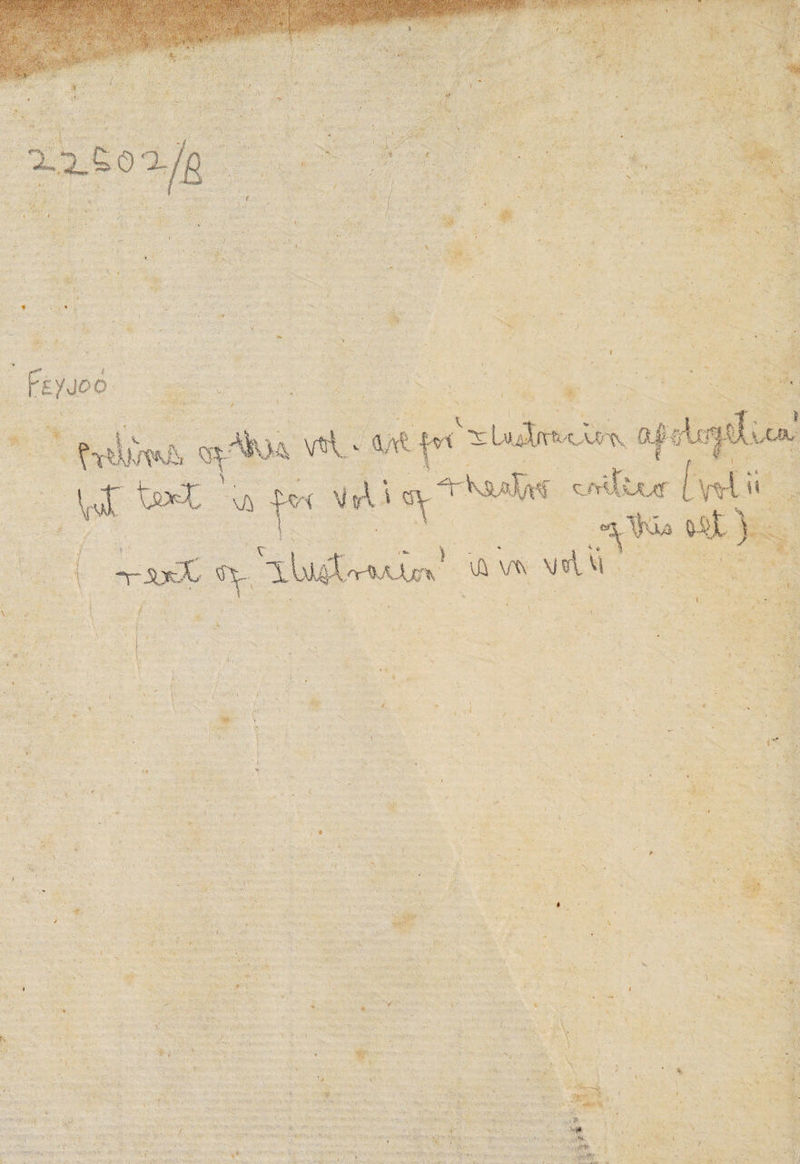 22502/B
FEYJOÓ
Prelims of this vol. are for 'Ilustracion apologetica'
but text is for vol i of Theatro critico (vol ii
of this set)
Text of 'Ilustracion' is in vol ii